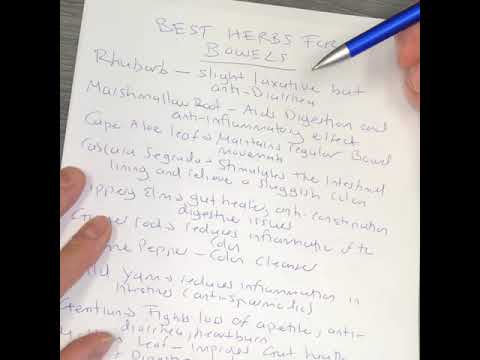 BEST HERBS For
BOWELS
Rhubarb – slight laxative but
anti-Diarrhea
Marshmallow Root – Aids Digestion and
anti-inflammatory effect
Cape Aloe leaf → Maintains regular Bowel
movements
Cascara Sagrada → Stimulates the Intestinal
lining and relieve a sluggish colon
Elm → gut healer, anti-constipation
digestive issues
root → reduces inflammation of the
Colon
Pepper – Colon Cleanser
Yam → reduces inflammation in
(anti-spasmodic)
Gentian → Fights loss of apetite, anti-
diarrhea, heartburn
Leaf – Improves Gut health
Digestion